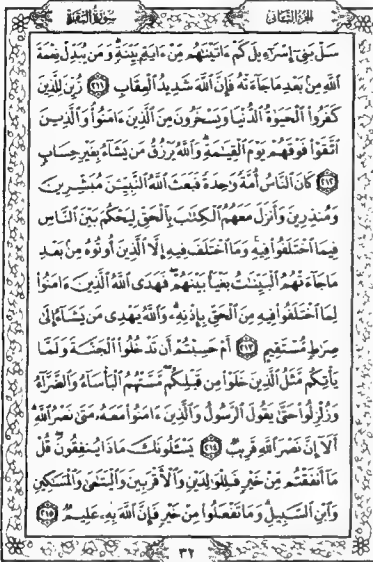 الجزء الثاني
سورة البقرة
سَلْ بَنِىٓ إِسْرَٰٓءِيلَ كَمْ ءَاتَيْنَٰهُم مِّنْ ءَايَةٍۭ بَيِّنَةٍ ۗ وَمَن يُبَدِّلْ نِعْمَةَ
ٱللَّهِ مِنۢ بَعْدِ مَا جَآءَتْهُ فَإِنَّ ٱللَّهَ شَدِيدُ ٱلْعِقَابِ ٢١١ زُيِّنَ لِلَّذِينَ
كَفَرُوا۟ ٱلْحَيَوٰةُ ٱلدُّنْيَا وَيَسْخَرُونَ مِنَ ٱلَّذِينَ ءَامَنُوا۟ ۘ وَٱلَّذِينَ
ٱتَّقَوْا۟ فَوْقَهُمْ يَوْمَ ٱلْقِيَٰمَةِ ۗ وَٱللَّهُ يَرْزُقُ مَن يَشَآءُ بِغَيْرِ حِسَابٍ
٢١٢ كَانَ ٱلنَّاسُ أُمَّةً وَٰحِدَةً فَبَعَثَ ٱللَّهُ ٱلنَّبِيِّـۧنَ مُبَشِّرِينَ
وَمُنذِرِينَ وَأَنزَلَ مَعَهُمُ ٱلْكِتَٰبَ بِٱلْحَقِّ لِيَحْكُمَ بَيْنَ ٱلنَّاسِ
فِيمَا ٱخْتَلَفُوا۟ فِيهِ ۚ وَمَا ٱخْتَلَفَ فِيهِ إِلَّا ٱلَّذِينَ أُوتُوهُ مِنۢ بَعْدِ
مَا جَآءَتْهُمُ ٱلْبَيِّنَٰتُ بَغْيًۢا بَيْنَهُمْ ۖ فَهَدَى ٱللَّهُ ٱلَّذِينَ ءَامَنُوا۟
لِمَا ٱخْتَلَفُوا۟ فِيهِ مِنَ ٱلْحَقِّ بِإِذْنِهِۦ ۗ وَٱللَّهُ يَهْدِى مَن يَشَآءُ إِلَىٰ
صِرَٰطٍ مُّسْتَقِيمٍ ٢١٣ أَمْ حَسِبْتُمْ أَن تَدْخُلُوا۟ ٱلْجَنَّةَ وَلَمَّا
يَأْتِكُم مَّثَلُ ٱلَّذِينَ خَلَوْا۟ مِن قَبْلِكُم ۖ مَّسَّتْهُمُ ٱلْبَأْسَآءُ وَٱلضَّرَّآءُ
وَزُلْزِلُوا۟ حَتَّىٰ يَقُولَ ٱلرَّسُولُ وَٱلَّذِينَ ءَامَنُوا۟ مَعَهُۥ مَتَىٰ نَصْرُ ٱللَّهِ ۗ
أَلَآ إِنَّ نَصْرَ ٱللَّهِ قَرِيبٌ ٢١٤ يَسْـَٔلُونَكَ مَاذَا يُنفِقُونَ ۖ قُلْ
مَآ أَنفَقْتُم مِّنْ خَيْرٍ فَلِلْوَٰلِدَيْنِ وَٱلْأَقْرَبِينَ وَٱلْيَتَٰمَىٰ وَٱلْمَسَٰكِينِ
وَٱبْنِ ٱلسَّبِيلِ ۗ وَمَا تَفْعَلُوا۟ مِنْ خَيْرٍ فَإِنَّ ٱللَّهَ بِهِۦ عَلِيمٌ ٢١٥
٣٢